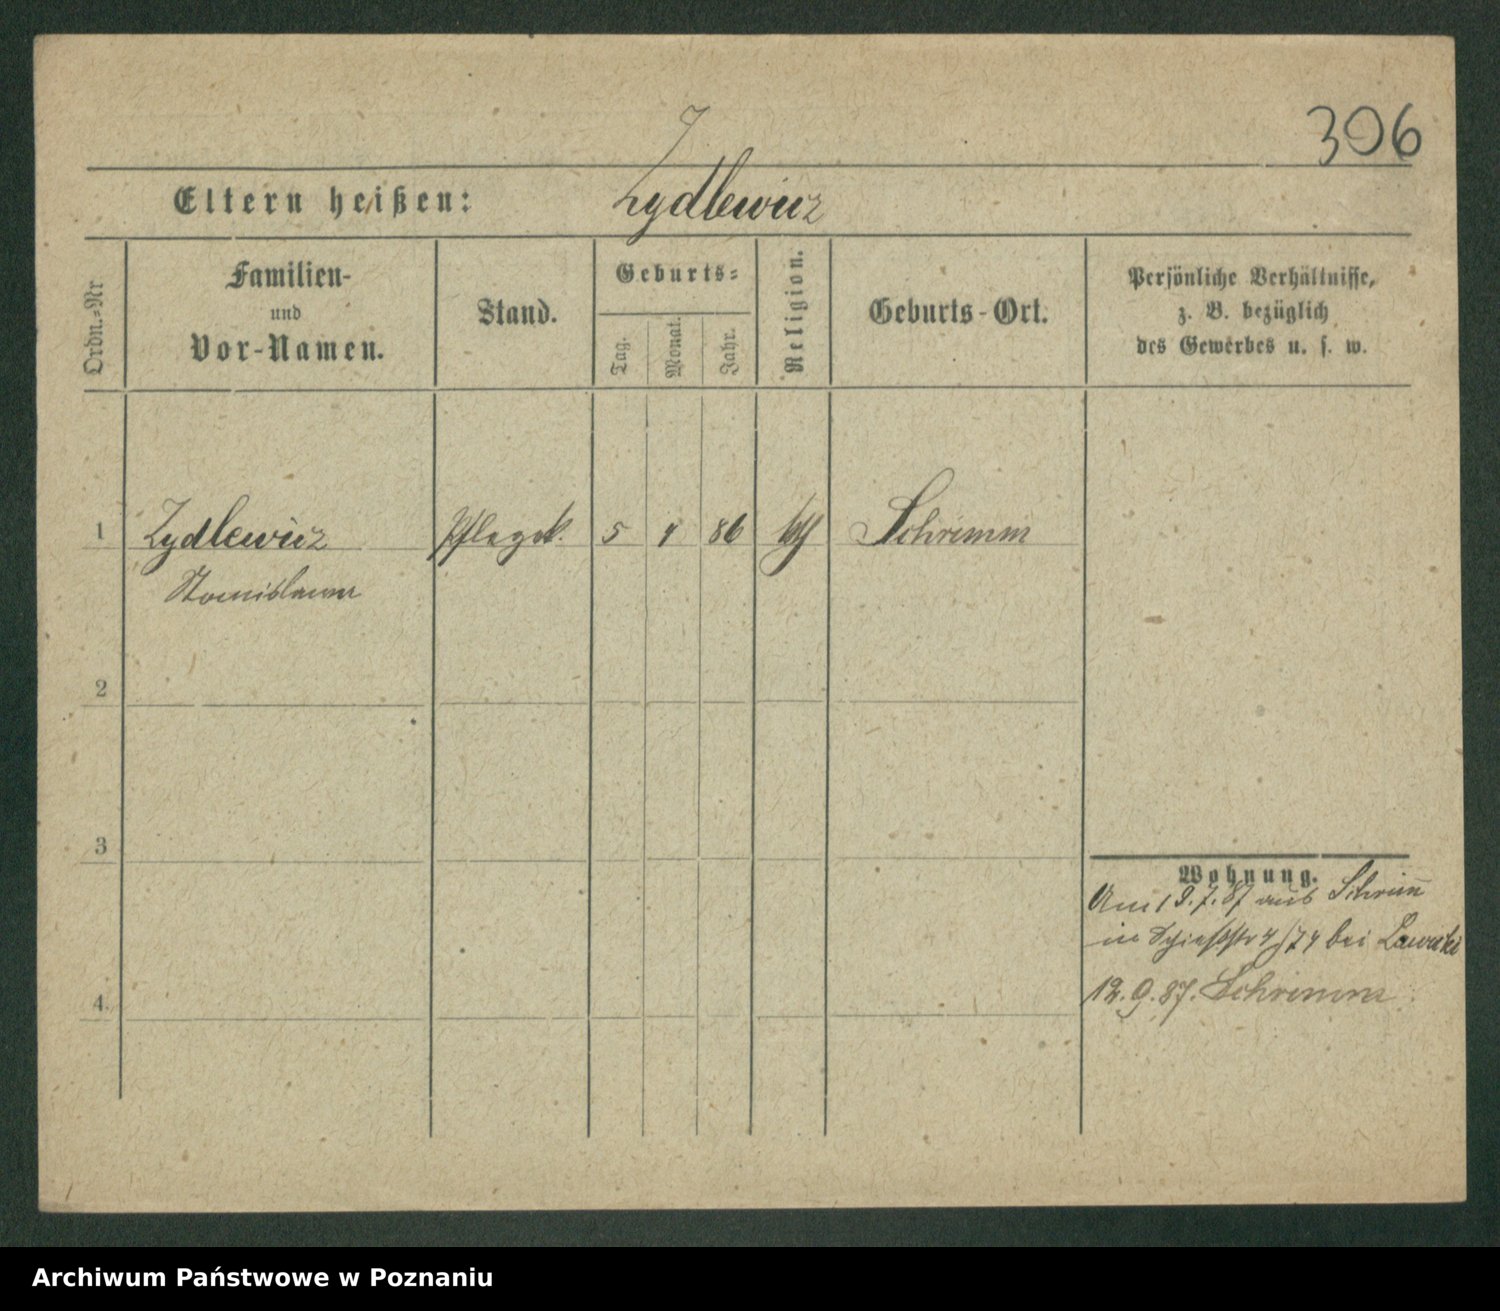 306
Eltern heißen: Zydlewicz
Ordn.=Nr
Familien-
und
Vor-Namen.
Stand.
Geburts=
Tag. Monat. Jahr.
Religion.
Geburts-Ort.
Persönliche Verhältnisse,
z. B. bezüglich
des Gewerbes u. s. w.
1 Zydlewicz Pflegek. 5 4 86 kth Schrimm
Stanislaus
2
3
Wohnung.
Am 19.7.87 aus Schrim̅
in Schießstr 4/74 bei
4.
12.9.87. Schrimm
Archiwum Państwowe w Poznaniu